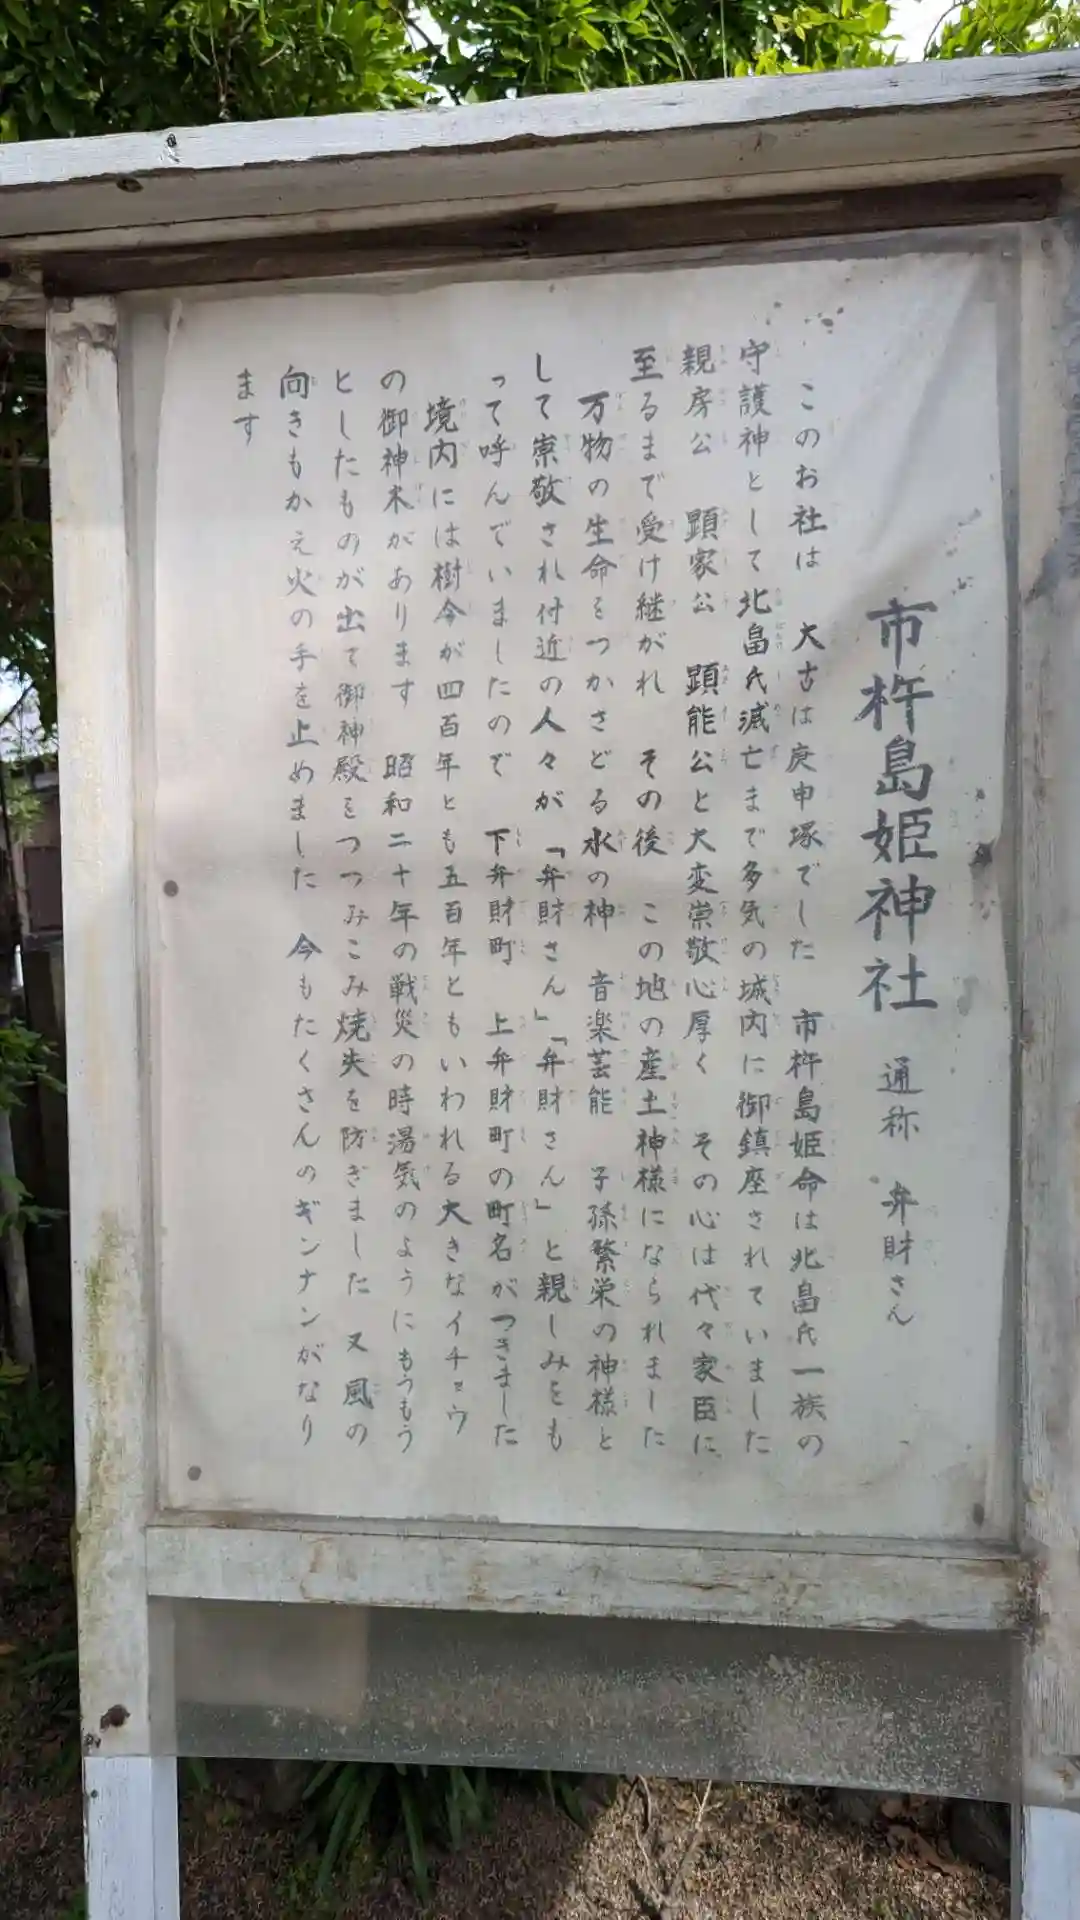 市杵島姫神社　通称　弁財さん
このお社は　大古は庚申塚でした　市杵島姫命は北畠氏一族の
守護神として北畠氏滅亡まで多気の城内に御鎮座されていました
親房公　顕家公　顕能公と大変崇敬心厚く　その心は代々家臣に
至るまで受け継がれ　その後　この地の産土神様になられました
万物の生命をつかさどる水の神　音楽芸能　子孫繁栄の神様と
して崇敬され付近の人々が「弁財さん」「弁財さん」と親しみをも
って呼んでいましたので　下弁財町　上弁財町の町名がつきました
境内には樹令が四百年とも五百年ともいわれる大きなイチョウ
の御神木があります　昭和二十年の戦災の時湯気のようにもうもう
としたものが出て御神殿をつつみこみ焼失を防ぎました　又風の
向きもかえ火の手を止めました　今もたくさんのギンナンがなり
ます